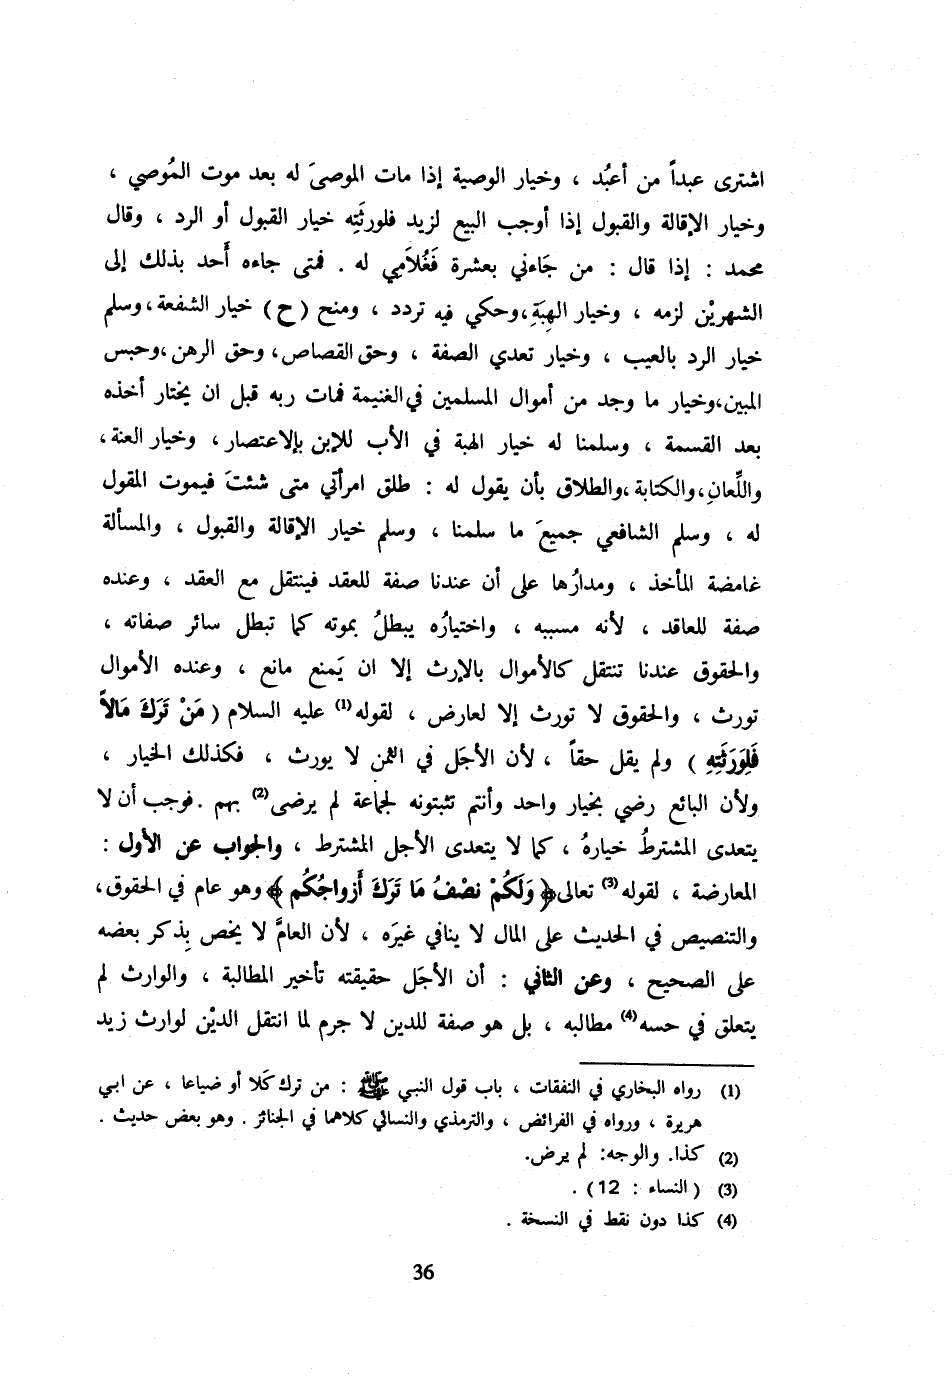 اشترى عبداً من أعبُد ، وخيار الوصية إذا مات الموصىَ له بعد موت المُوصي ،
وخيار الإقالة والقبول إذا أوجب البيع لزيد فلورثَتِه خيار القبول أو الرد ، وقال
محمد : إذا قال : من جَاءني بعشرة فَغُلاَمِي له . فمتى جاءه أَحد بذلك إلى
الشهريْن لزمه ، وخيار الهِبَةِ،وحكي فيه تردد ، ومنح ( ح ) خيار الشفعة ،وسلم
خيار الرد بالعيب ، وخيار تعدي الصفة ، وحق القصاص، وحق الرهن ،وحبس
المبين،وخيار ما وجد من أموال المسلمين في الغنيمة فمات ربه قبل ان يختار أخذه
بعد القسمة ، وسلمنا له خيار الهبة في الأب للإبن بإلاعتصار، وخيار العنة،
واللِّعانِ،والكتابة،والطلاق بأن يقول له : طلق امرأتي متى شئتَ فيموت المقول
له ، وسلم الشافعي جميعَ ما سلمنا ، وسلم خيار الإقالة والقبول ، والمسألة
غامضة المأخذ ، ومدارُها على أن عندنا صفة للعقد فينتقل مع العقد ، وعنده
صفة للعاقد ، لأنه مسببه ، واختيارُه يبطلُ بموته كما تبطل سائر صفاته ،
والحقوق عندنا تنتقل كالأموال بالإرث إلا ان يَمنع مانع ، وعنده الأموال
تورث ، والحقوق لا تورث إلا لعارض ، لقوله(1) عليه السلام ( مَنْ تَرَكَ مَالاً
فَلِوَرَثَتِهِ ) ولم يقل حقاً ، لأن الأجَل في الثمن لا يورث ، فكذلك الخيار ،
ولأن البائع رضي بخيار واحد وأنتم تثبتونه لجماعة لم يرضى(2) بهم .فوجب أن لا
يتعدى المشترطُ خيارهُ ، كما لا يتعدى الأجل المشترط ، والجواب عن الأول :
المعارضة ، لقوله(3) تعالى﴿ وَلَكُمْ نصْفُ مَا تَرَكَ أَزواجُكُم ﴾ وهو عام في الحقوق،
والتنصيص في الحديث على المال لا ينافي غيرَه ، لأن العامَّ لا يخص بِذكر بعضه
على الصحيح ، وعن الثاني : أن الأجَل حقيقته تأخير المطالبة ، والوارث لم
يتعلق في حسه(4) مطالبه ، بل هو صفة للدين لا جرم لما انتقل الديْن لوارث زيد
(1) رواه البخاري في النفقات ، باب قول النبي ﷺ : من ترك كَلا أو ضياعا ، عن ابي
هريرة ، ورواه في الفرائض ، والترمذي والنسائي كلاهما في الجنائز . وهو بعض حديث .
(2) كذا. والوجه: لم يرض.
(3) ( النساء : 12 ) .
(4) كذا دون نقط في النسخة .
36